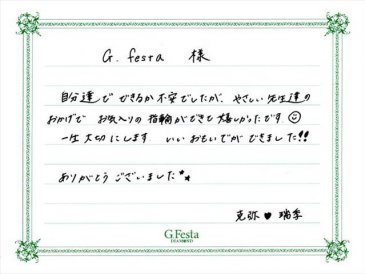 G. festa 様
自分達でできるか不安でしたが、やさしい先生達の
おかげで お気入りの指輪ができて嬉しかったです。
一生大切にします。いいおもいでができました!!
ありがとうございました
克弥 ♥ 瑞季
G.Festa
DIAMOND